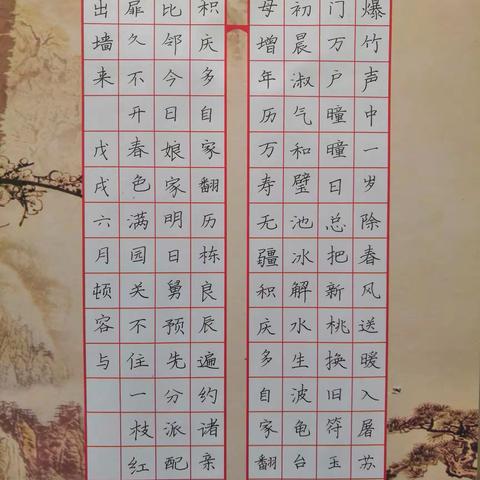 爆竹声中一岁除春风送暖入屠苏
门万户曈曈日总把新桃换旧符玉
初晨淑气和璧池冰解水生波龟台
母增年历万寿无疆积庆多自家翻
积庆多自家翻历栋良辰遍约诸亲
比邻今日娘家明日舅预先分派配
扉久不开春色满园关不住一枝红
出墙来 戊戌六月顿容与